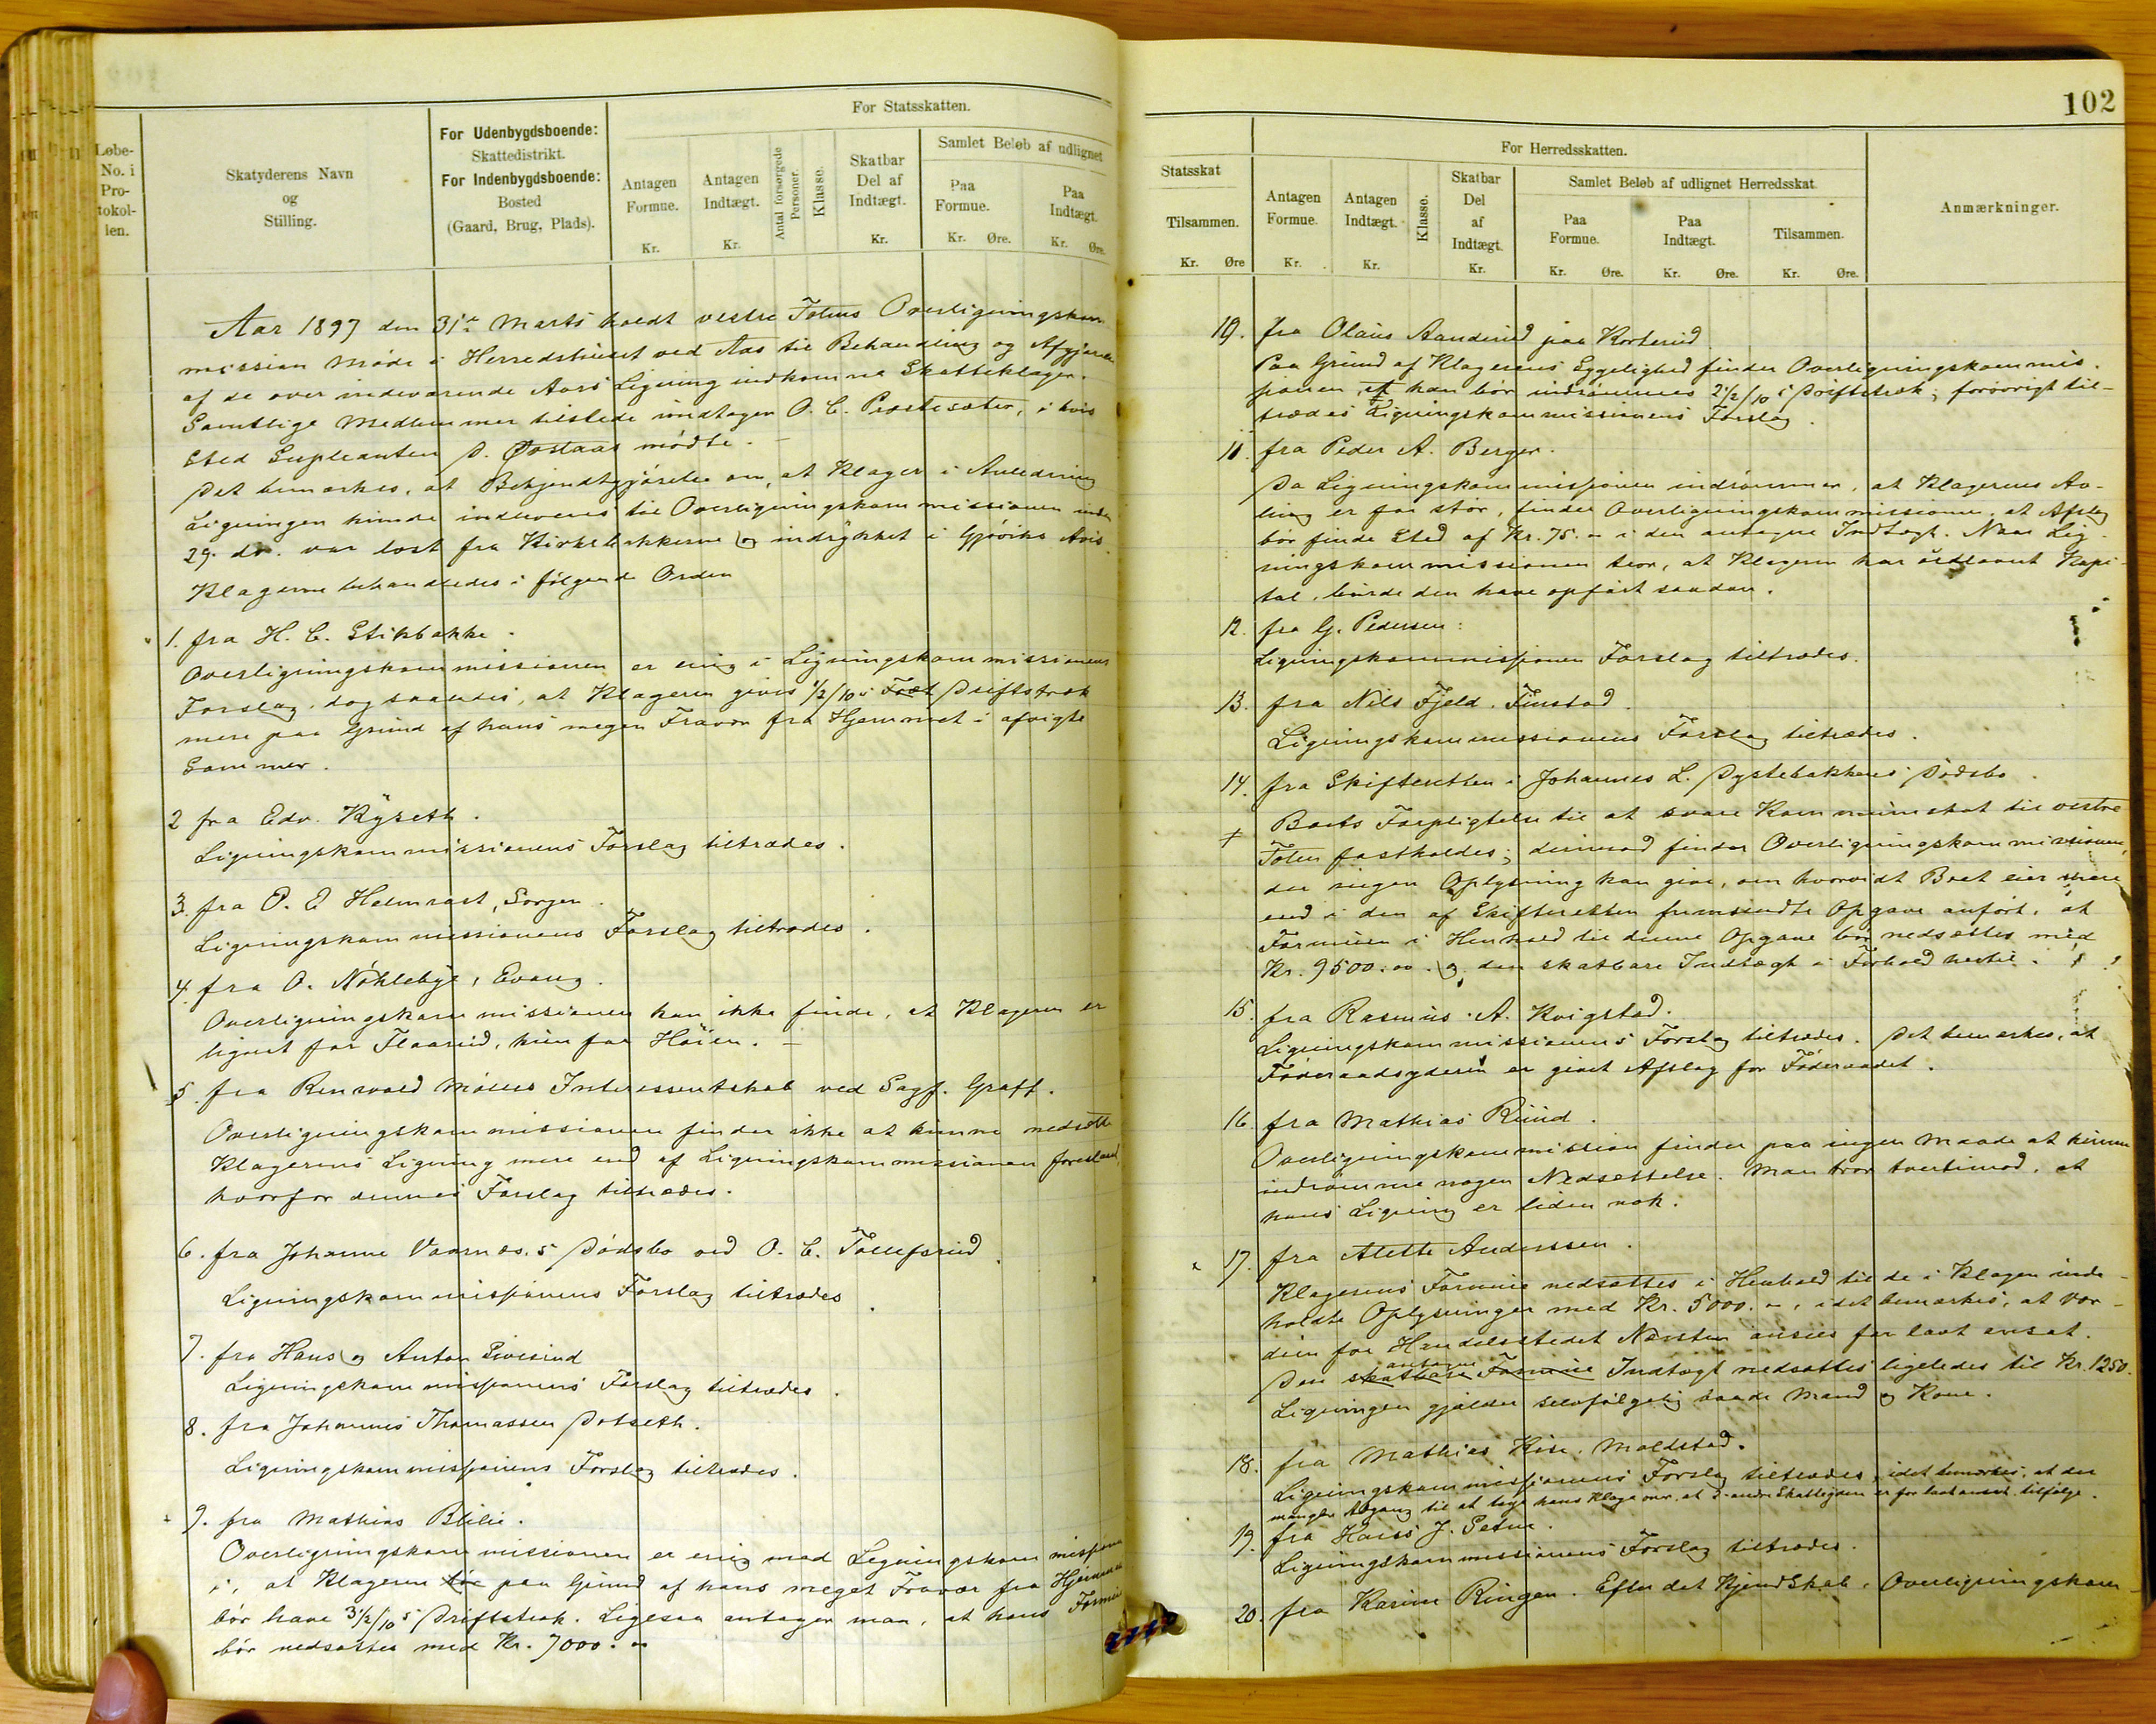 Løbe-
No. i
Pro-
tokol-
len.
Skatyderens Navn
og
Stilling.
For Udenbygdsboende:
Skattedistrikt.
For Indenbygdsboende:
Bosted
(Gaard, Brug, Plads).
For Statsskatten.
Antagen
Formue.
Kr.
Antagen
Indtægt.
Kr.
Antal forsørgede
Personer.
Klasse.
Skatbar
Del af
Indtægt.
Kr.
Samlet Beløb af udlignet
Paa
Formue.
Kr. Øre.
Paa
Indtægt.
Kr. Øre.
Aar 1897 den 31te Marts holdt vestre Totens Overligningskom-
mission Møde i Herredshuset ved Aas til Behandling og Afgjørelse
af de over indeværende Aars Ligning indkomne Skatteklager.
Samtlige Medlemmer tilstede undtagen O. C. Prestesæter, i hvis
Sted Suppleanten P. Øvstaas mødte. —
Det bemærkes, at Bekjendtgjørelse om, at Klager i Anledning
Ligningen kunde indleveres til Overligningskommissionen inden
29. ds. var læst fra Kirkebakkerne og indrykket i Gjøviks Avis.
Klagerne behandledes i følgende Orden
1. fra H. C. Stikbakke.
Overligningskommissionen er enig i Ligningskommissionens
Forslag, dog saaledes, at Klageren gives 1/2/10 i Driftstræk
mere paa Grund af hans megen Fravær fra Hjemmet i afvigte
Sommer.
2 fra Edv. Ryseth.
Ligningskommissionens Forslag tiltrædes.
3. fra P. E Helmrast, Sorgen.
Ligningskommissionens Forslag tiltrædes.
4. fra O. Nøkleby, Evang.
Overligningskommissionen kan ikke finde, at Klageren er
lignet for Flaarud, kun for Høien. —
5. fra Renvold Mølles Interessentskab ved Sagf. Graff.
Overligningskommissionen finder ikke at kunne nedsætte
Klagerens Ligning mere end af Ligningskommissionen foreslaaet,
hvorfor dennes Forslag tiltrædes.
6. fra Johanne Vaarnæs's Dødsbo ved O. C. Tollefsrud.
Ligningskommissjonens Forslag tiltrædes.
7. fra Hans og Anton Sivesind
Ligningskommissjonens Forslag tiltrædes.
8. fra Johannes Thomassen Dotseth.
Ligningskommissjonens Forslag tiltrædes.
9. fra Mathias Blilie.
Overligningskommissionen er enig med Ligningskommissjonen
i, at Klageren bør paa Grund af hans meget Fravær fra Hjemmet
bør have 3 1/2/10 i Driftstræk. Ligesaa antager man, at hans Formue
bør nedsættes med Kr. 7000.
102
Statsskat
Tilsammen.
Kr. Øre
For Herredsskatten.
Antagen
Formue.
Kr.
Antagen
Indtægt.
Kr.
Klasse.
Skatbar
Del
af
Indtægt.
Kr.
Samlet Beløb af udlignet Herredsskat.
Paa
Formue.
Kr. Øre.
Paa
Indtægt.
Kr. Øre.
Tilsammen.
Kr. Øre.
Anmærkninger.
10. fra Olaus Aanderud paa Korterud
Paa Grund af Klagerens Sygelighed finder Overligningskommis-
sjonen, at han bør indrømmes 2 1/2/10 i Driftstræk; forøvrigt til-
trædes Ligningskommissionens Forslag.
11. fra Peder A. Berger.
Da Ligningskommissjonen indrømmer, at Klagerens Av-
ling er for stor, finder Overligningskommissionen, at Afslag
bør finde Sted af Kr. 75. i den antagne Indtægt. Naar Lig-
ningskommissionen tror, at Klageren har udlaant Kapi-
tal, burde den have opført saadan.
12. fra G. Pedersen:
Ligningskommissjonen Forslag tiltrædes.
13. fra Nils Fjeld, Finstad.
Ligningskommissionens Forslag tiltrædes.
14. fra Skifteretten i Johannes L. Dystebakkens Dødsbo.
Boets Forpligtelse til at svare Kommuneskat til vestre
Toten fastholdes; derimod finder Overligningskommissionen,
der ingen Oplysning kan give, om hvorvidt Boet eier mere
end i den af Skifteretten fremsendte Opgave anført, at
Formuen i Henhold til denne Opgave bør nedsættes med
Kr. 9500.00. og den skatbare Indtægt i Forhold hertil.
15. fra Rasmus A. Kvigstad.
Ligningskommissionens Forslag tiltrædes. Det bemærkes, at
Føderaadsyderen er givet Afslag for Føderaadet.
16. fra Mathias Ruud.
Overligningskommission finder paa ingen Maade at kunne
indrømme nogen Nedsættelse. Man tror tvertimod, at
hans Ligning er liden nok.
17. fra Alette Anderssen.
Klagerens Formue nedsættes i Henhold til de i Klagen inde-
holdte Oplysninger med Kr. 5000., idet bemærkes, at Vær-
dien for Handelsstedet Næsten ansees for lavt ansat.
antagne
Den skatbare Formue Indtægt nedsættes ligeledes til Kr. 1250.
Ligningen gjælder selvfølgelig baade Mand og Kone.
18. fra Mathias Kise, Moldstad.
Ligningskommissjonens Forslag tiltrædes, idet bemærkes, at der
mangler Adgang til at tage hans Klage over, at andre Skatteydere er for lavt ansat, tilfølge.
19. fra Hans J. Setne.
Ligningskommissionens Forslag tiltrædes.
20. fra Karine Ringen. Efter det Kjendskab, Overligningskom-